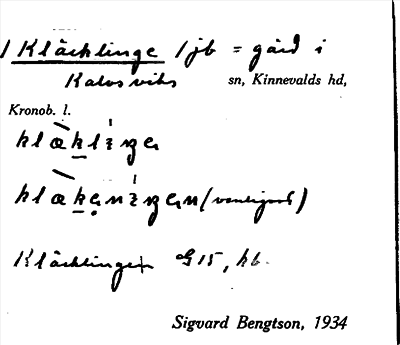 / Kläcklinge / jb = gård i
Kalvsviks sn, Kinnevalds hd,
Kronob. l.
klækliŋa
klækeniŋen (vanligast)
Kläcklingen G15, hb.
Sigvard Bengtson, 1934